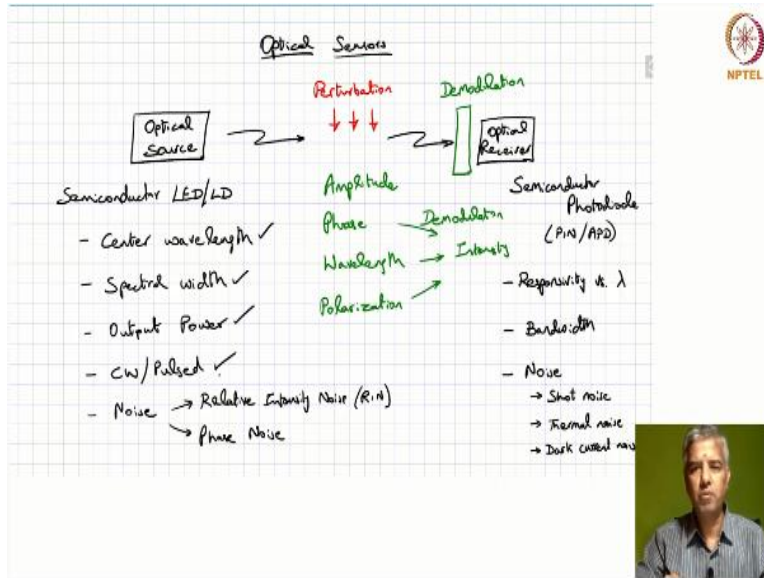 Optical Sensors
NPTEL
Perturbation
Demodulation
Optical
Source
Optical
Receiver
Semiconductor LED/LD
- Center wavelength ✓
- Spectral width ✓
- Output Power ✓
- CW/Pulsed ✓
- Noise → Relative Intensity Noise (RIN)
→ Phase Noise
Amplitude
Phase
Wavelength →
Polarization
Demodulation
Intensity
Semiconductor
Photodiode
(PIN/APD)
- Responsivity vs. λ
- Bandwidth
- Noise
→ Shot noise
→ Thermal noise
→ Dark current